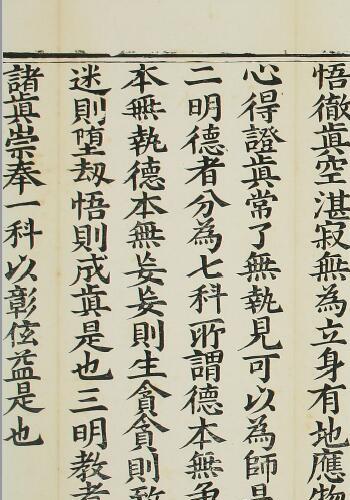 悟徹眞空湛寂無為立身有地應物
心得證眞常了無執見可以為師是
二明德者分為七科所謂德本無為
本無執德本無妄妄則生貪貪則致
迷則墮劫悟則成眞是也三明教者
諸眞崇奉一科以彰伭益是也